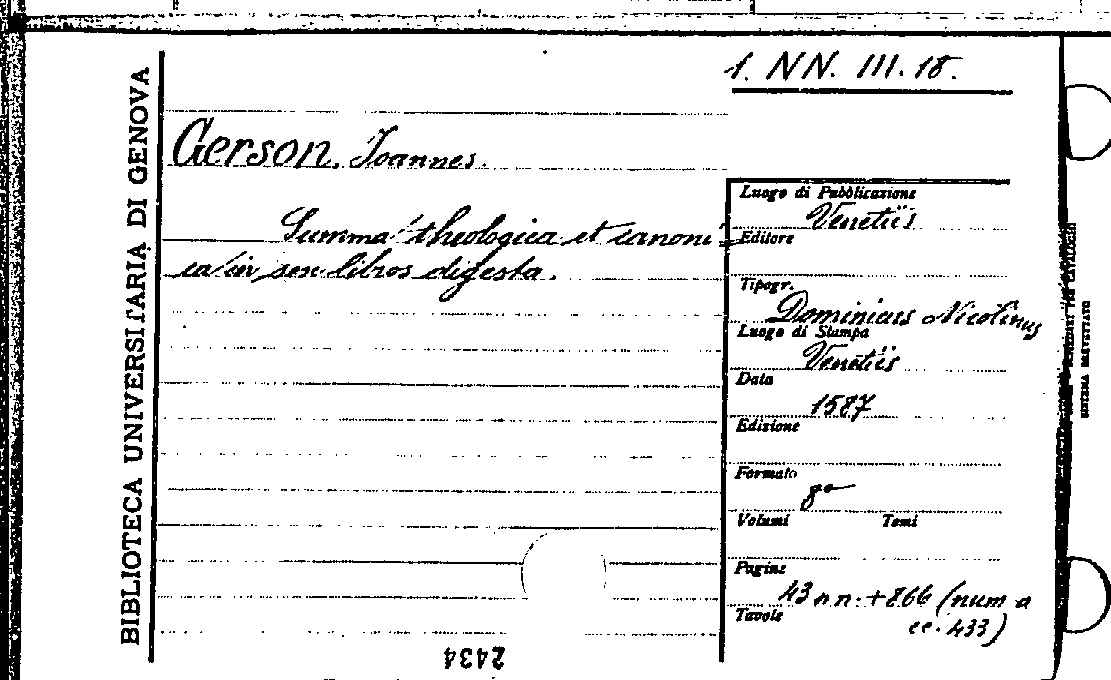 1. NN. III. 18.
BIBLIOTECA UNIVERSITARIA DI GENOVA
Gerson. Joannes.
Summa theologica et canoni=
ca in sex libros digesta.
Luogo di Pubblicazione
Venetiis
Editore
Tipogr.
Dominicus Nicolinus
Luogo di Stampa
Venetiis
Data
1587
Edizione
Formato
8°
Volumi Tomi
Pagine
43 n n. + 866 (num a
cc. 433)
Tavole
2434
SISTEMA BREVETTATO